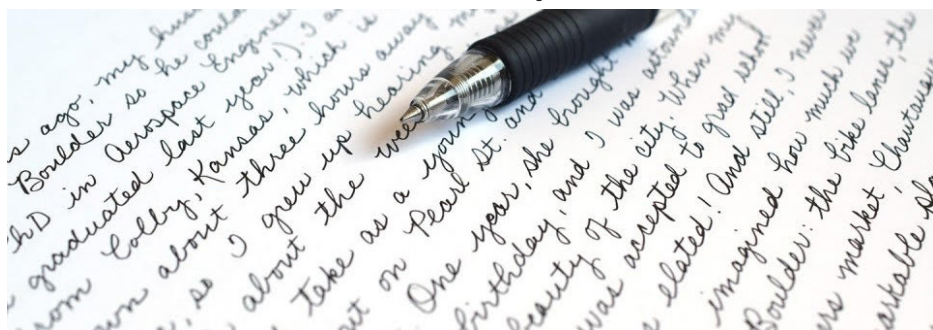 s ago, my hus
Boulder so he could
hD in Aerospace Enginee
graduated last year!). I a
rom Colby, Kansas, which is
wn about three hours away
, so I grew up hearing
about the wee
take as a young
ut on Pearl St. and
One year, she brought m
birthday, and I was astound
beauty of the city. When my
was accepted to grad school
elated! And still, I never
imagined how much we
Boulder: the bike lanes, the
rs market, Chautauqu
arkable pla